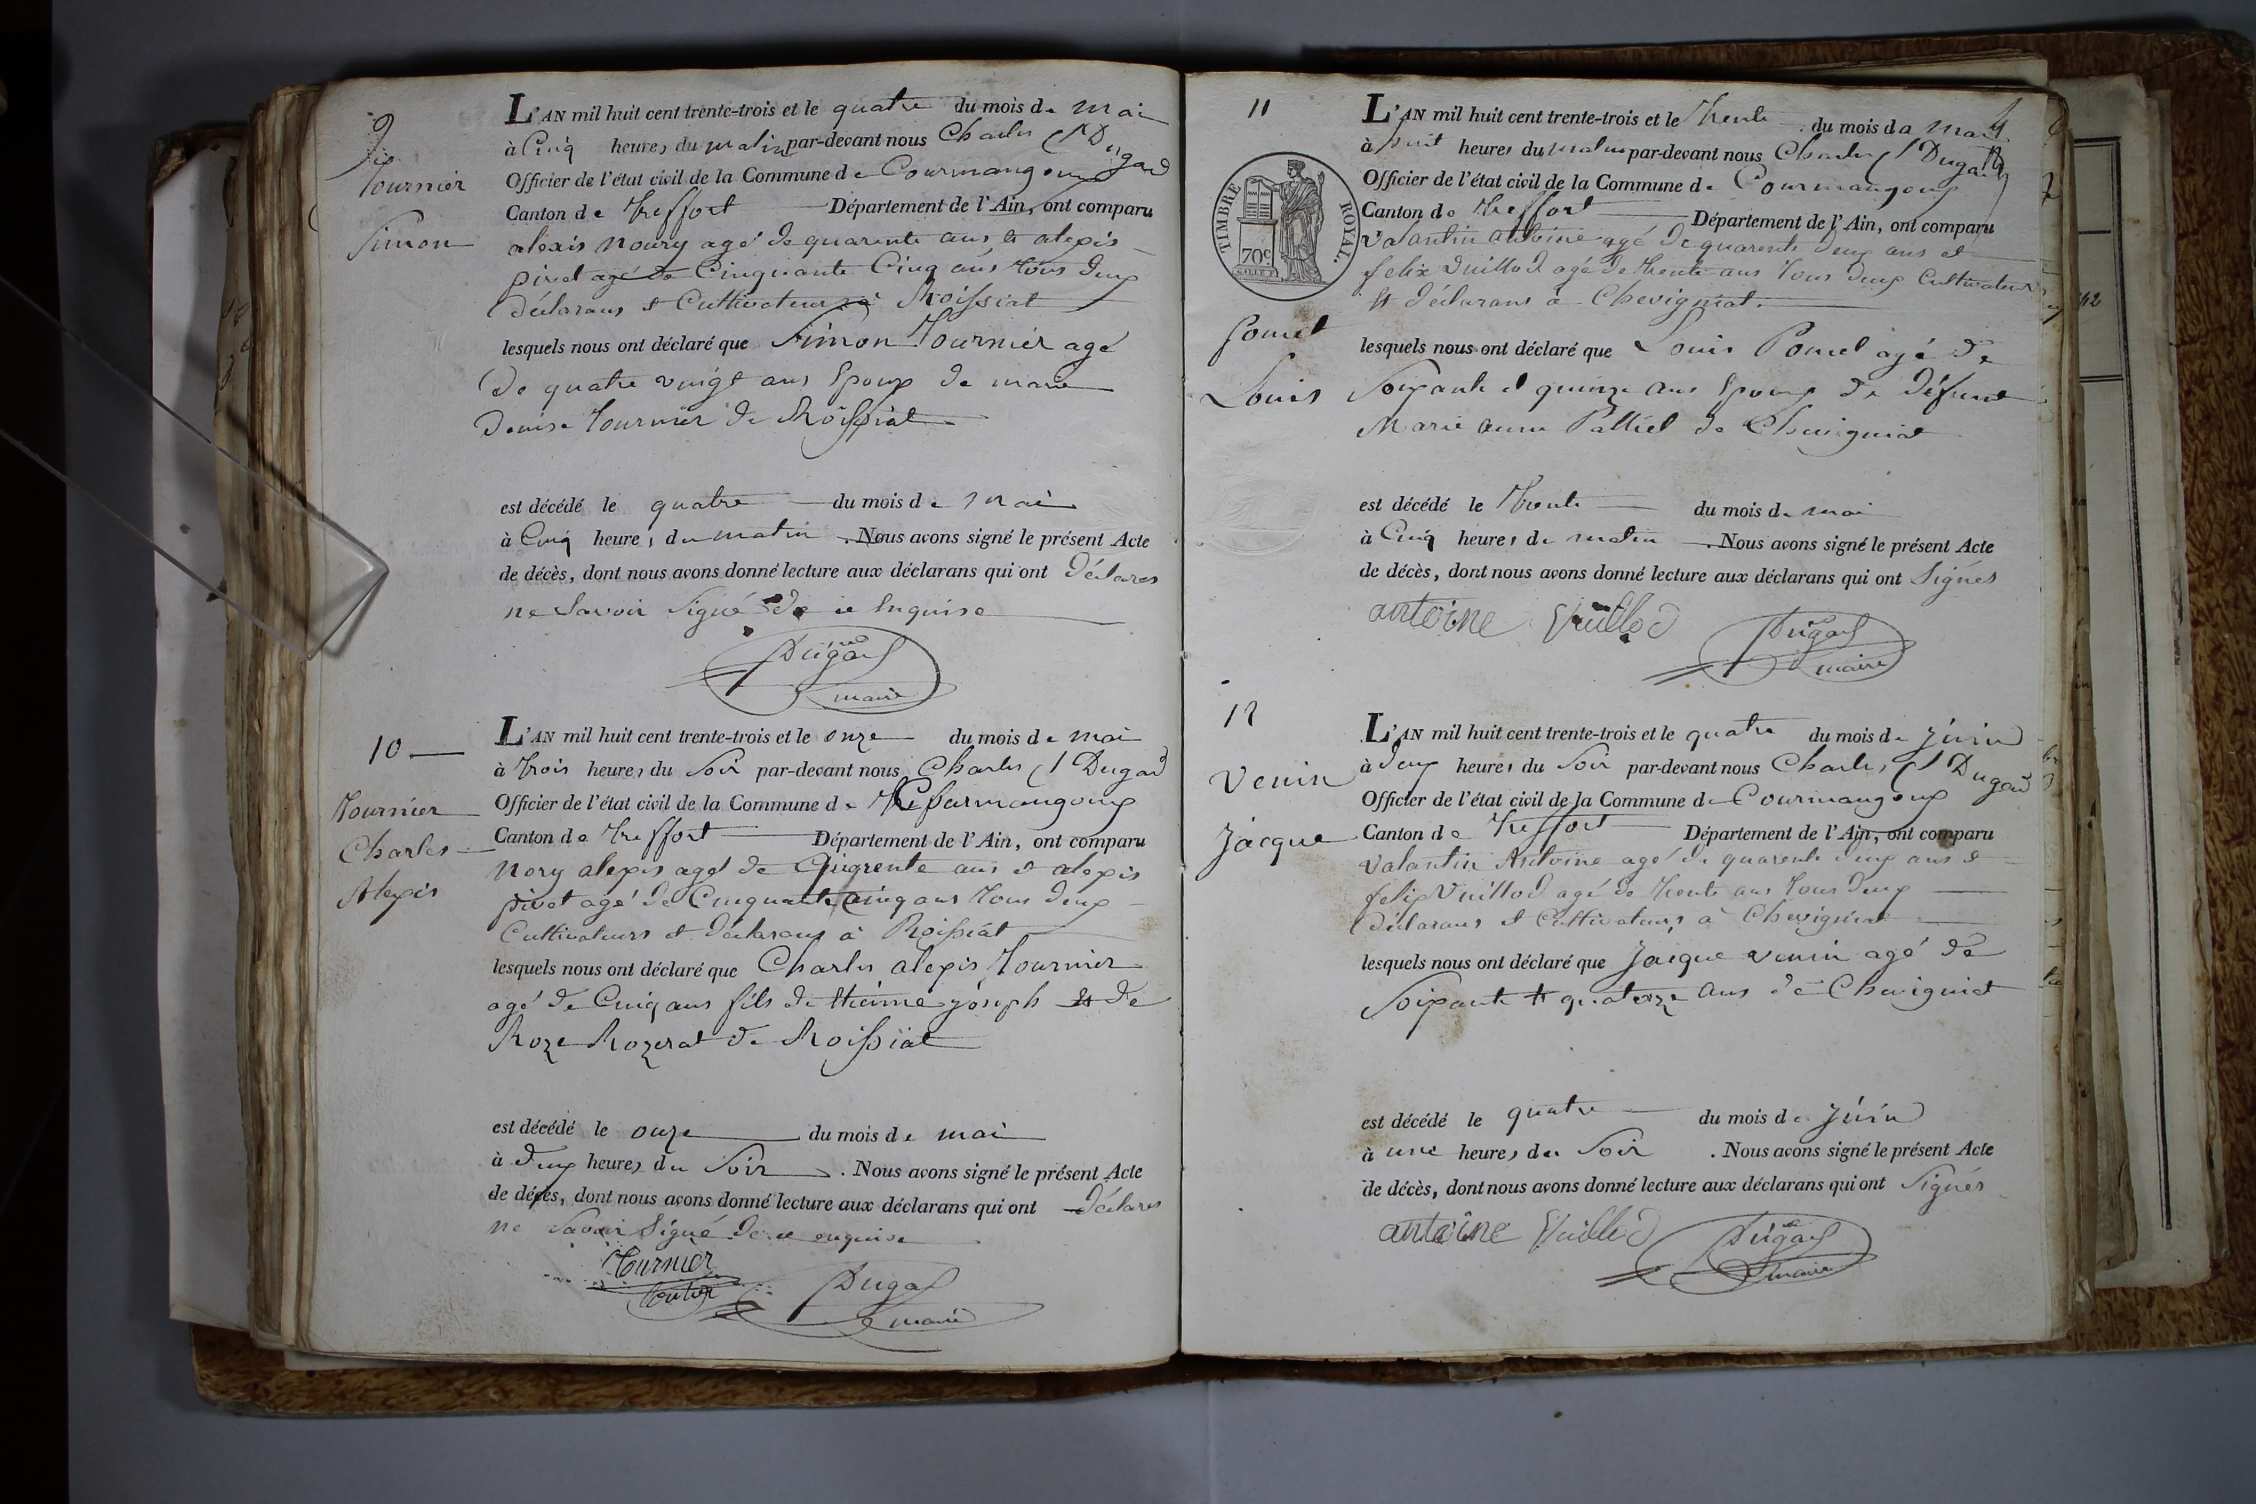 9
Tournier
Simon
L'AN mil huit cent trente-trois et le quatre du mois de mai
à Cinq heures du matin par-devant nous Charles Dugad
Officier de l'état civil de la Commune de Courmangoux
Canton de Treffort Département de l'Ain, ont comparu
alexis noury agé de quarente ans et alexis
pivet agé de Cinquante Cinq ans tous deux
Déclarans et Cultivateurs à Roissiat
lesquels nous ont déclaré que Simon Tournier agé
De quatre vingt ans Epoux de marie
Denise Tournier de Roissiat
est décédé le quatre du mois de mai
à Cinq heures du matin . Nous avons signé le présent Acte
de décès, dont nous avons donné lecture aux déclarans qui ont Déclares
ne Savoir Signé de ce Enquise
Dugad
maire
10
Tournier
Charles
Alexis
L'AN mil huit cent trente-trois et le onze du mois de mai
à trois heures du Soir par-devant nous Charles Dugad
Officier de l'état civil de la Commune de Courmangoux
Canton de Treffort Département de l'Ain, ont comparu
Nory alexis agé de Quarente ans et alexis
pivet agé de Cinquante Cinq ans tous deux
Cultivateurs et Déclarans à Roissiat
lesquels nous ont déclaré que Charles alexis Tournier
agé de Cinq ans fils de joseph et de
Roze Rozerat de Roissiat
est décédé le onze du mois de mai
à Deux heures du Soir . Nous avons signé le présent Acte
de décès, dont nous avons donné lecture aux déclarans qui ont Déclares
ne Savoir Signé De ce enquise
Turnier
Dugad
maire
11
TIMBRE ROYAL.
70c
Pomel
Louis
L'AN mil huit cent trente-trois et le Trente du mois de mai
à huit heures du matin par-devant nous Charles Dugad
Officier de l'état civil de la Commune de Courmangoux
Canton de Treffort Département de l'Ain, ont comparu
Valantin antoine agé de quarente deux ans et
felix Vuillod agé de trente ans tous deux Cultivateurs
et déclarans à Chevigniat.
lesquels nous ont déclaré que Louis Pomel agé de
Soixante et quinze ans Epoux de défunt
Marie anne Palliel de Chevigniat
est décédé le Trente du mois de mai
à Cinq heures du matin . Nous avons signé le présent Acte
de décès, dont nous avons donné lecture aux déclarans qui ont Signés
antoine Vuillod
Dugad
maire
12
Venin
Jacque
L'AN mil huit cent trente-trois et le quatre du mois de juin
à deux heures du Soir par-devant nous Charles Dugad
Officier de l'état civil de la Commune de Courmangoux
Canton de Treffort Département de l'Ain, ont comparu
Valantin Antoine agé de quarente deux ans et
felix Vuillod agé de trente ans tous deux
Déclarans et Cultivateurs à Chevigniat
lesquels nous ont déclaré que Jacque venin agé de
Soixante et quatorze ans de Chevigniat
est décédé le quatre du mois de juin
à une heures du Soir . Nous avons signé le présent Acte
de décès, dont nous avons donné lecture aux déclarans qui ont Signés
antoine Vuillod
Dugad
maire